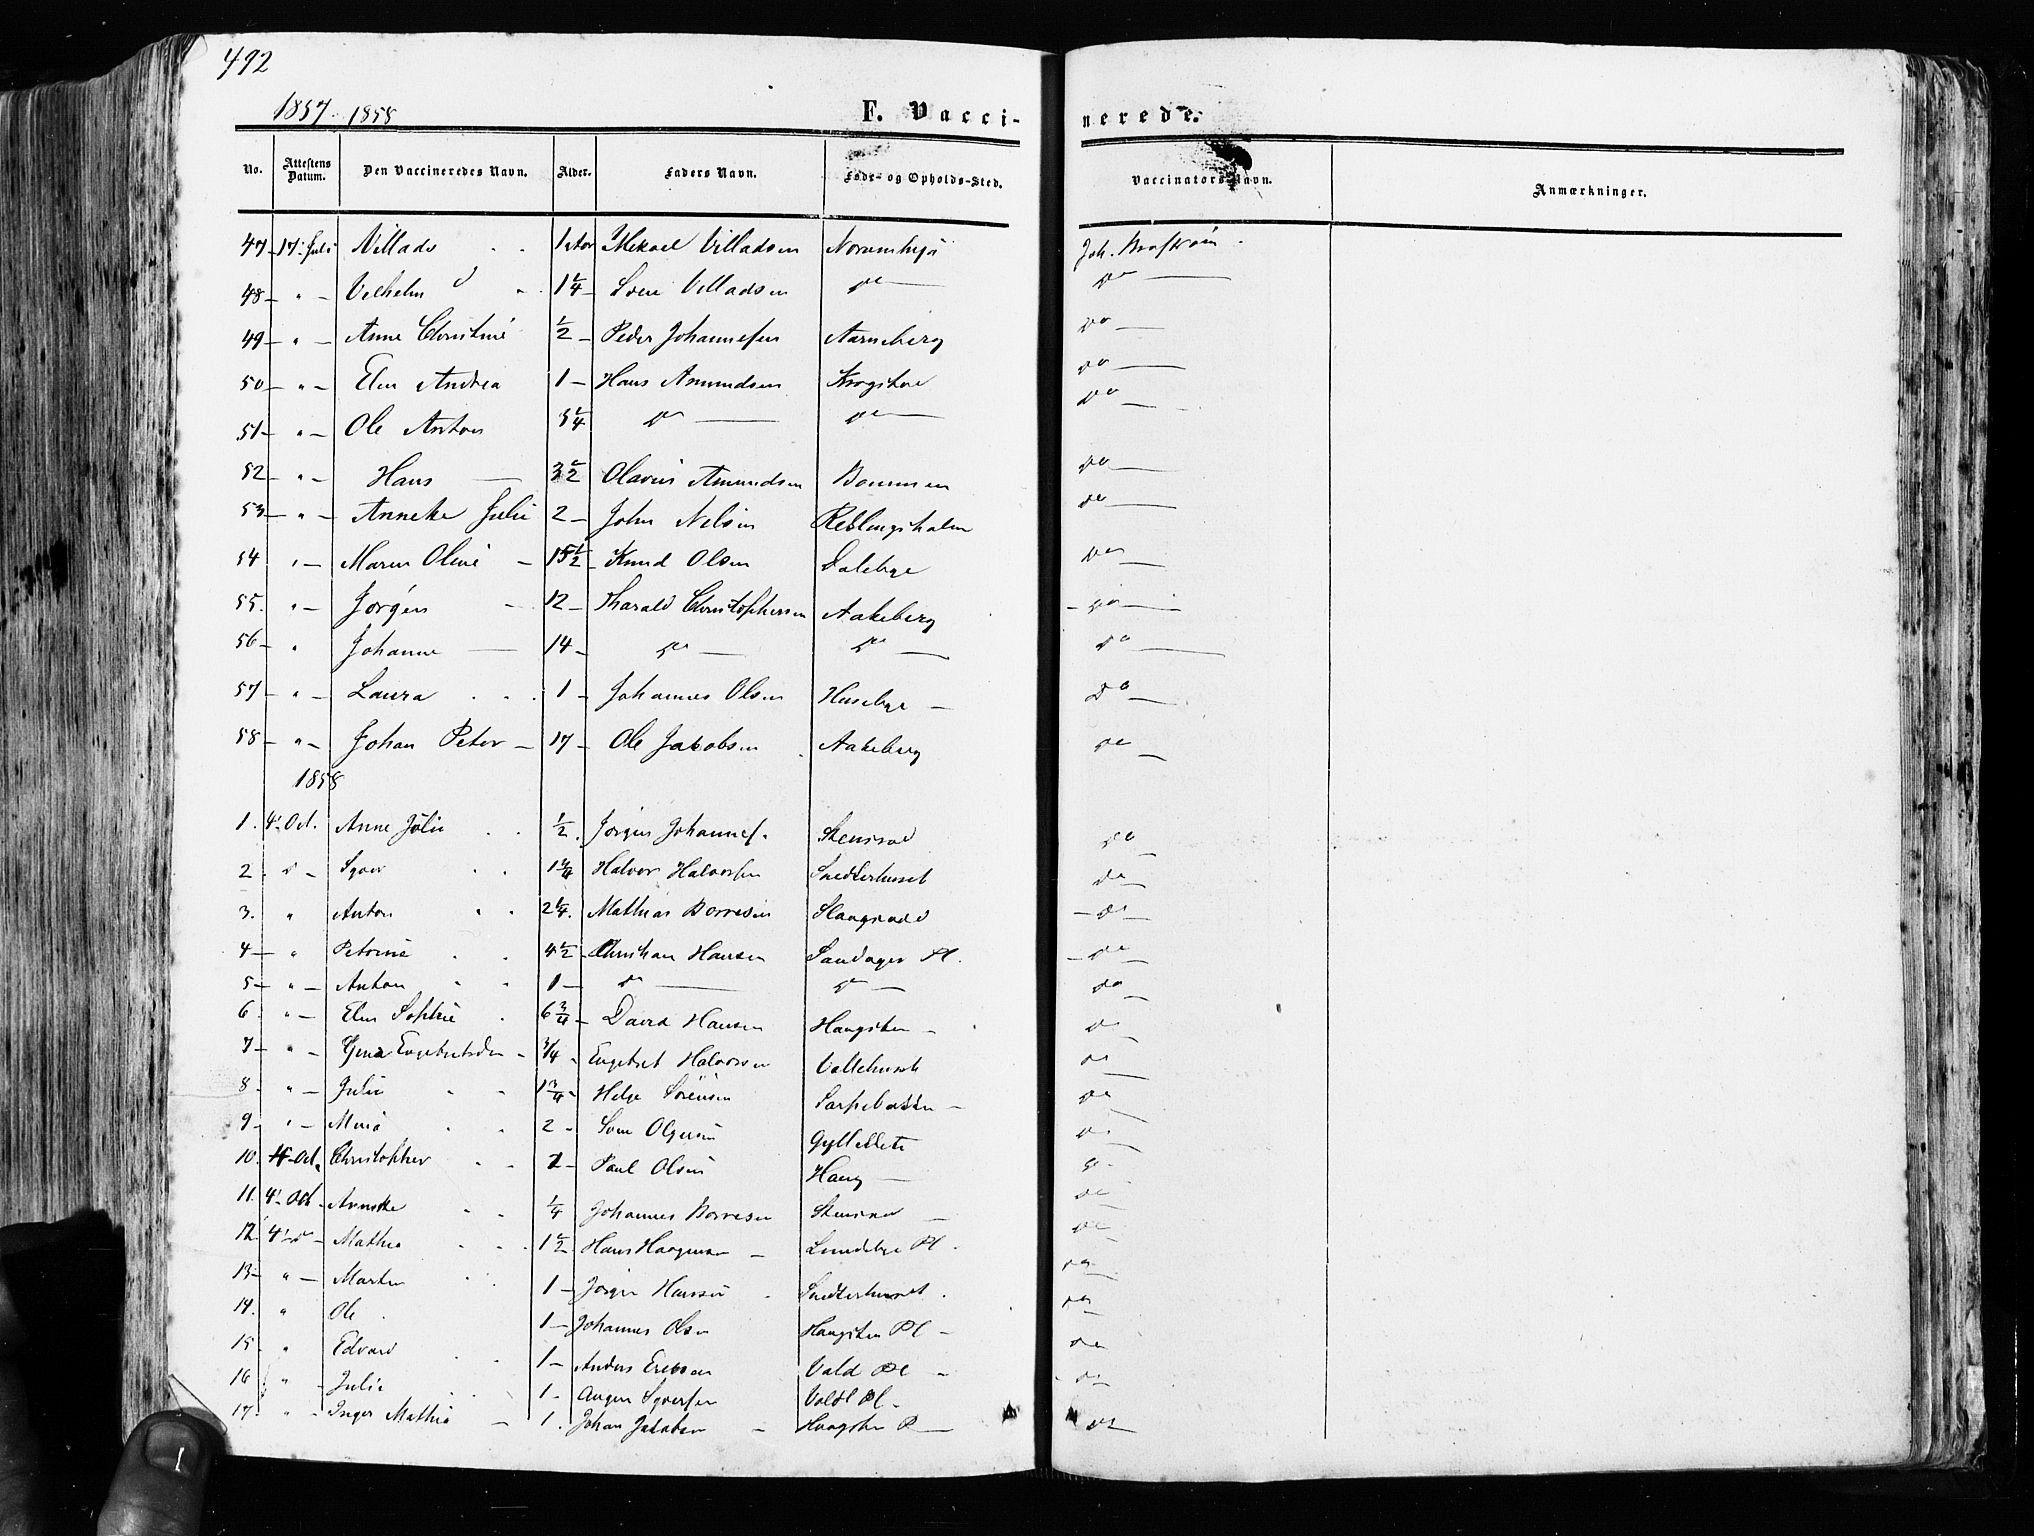 492
1857. 1858
F. Vaccinerede.
No. Attestens Datum. Den Vaccineredes Navn. Alder. Faders Navn. Føde- og Opholds-Sted. Vaccinators Navn. Anmærkninger.
47 - 17. Juli Villads 1 Aar Mikael Villadsen Joh.
48 - " - Vilhelm 1 1/4 - Villadsen do - do
49 - " - Anne Christine 1/2 - Peder Johannesen Aarneberg do
50 - " - Elen Andrea 1 - Hans Amundsen Krogstad do
51 - " - Ole Anton do do do
52 - " - Hans 3 1/2 Olavus Amundsen do
53 - " - Anneke Julie 2 - John Nelsen do
54 " - Maren Oline - 15 1/2 - Knud Olsen Dalebye do
55. " - Jørgen - 12 - Harald Christophersen Aakeberg do
56 - " Johanne - 14 - do do do
57 - " - Laura 1 - Johannes Olsen Husebye - do
58 - " - Johan Peter - 17 - Ole Jakobsen Aakeberg do
1858
1. 4. Oct. Anne Julie 1/2 Jørgen Johannes. Stensrud do
2 - d - Syver 1 1/4 Halvor Halvorsen Snedkerhuset do
3. " Anton 2 1/4. Mathias Borresen do
4 - " Petrine 4 1/2 Christian Hansen Sandager Pl. do
5 - " - Anton 1 - do do do
6 " - Elen Sophie 6 3/4 - David Hansen Haugsten - do
7 - " - Engebretsdr - 3/4 - Engebret Halvorsen Vallehuset do
8 " - Julie 1 3/4 - Helge Sørensen - do
9 " - 2 - do
10. 4 - Oct. Christopher Paul Olsen Haug do
11. 4. Oct - Anneke 1/4 Johannes Borresen Stensrud - do
12. 4. d - Mathea 1 1/2 - Hans - Lundebye Pl. do
13 - " - Martin 1 - Jørgen Hansen Snedkerhuset. do
14. " Ole 1 - Johannes Olsen Haugsten Pl - do
15 " Edvard 1 - Anders Vald Pl - do
16 " - Julie 1 - Syversen Vald Pl - do
17. " - Inger Mathea - 1. Johan Jakobsen - Haugsten P - do